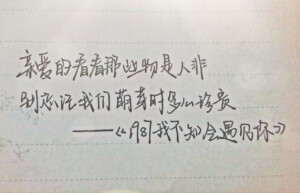 亲爱的看看那些物是人非
别忘记我们萌芽时多么珍贵
——《1987我不知会遇见你》